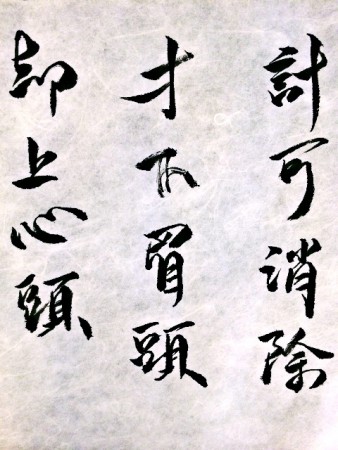 計可消除
才下眉頭
却上心頭